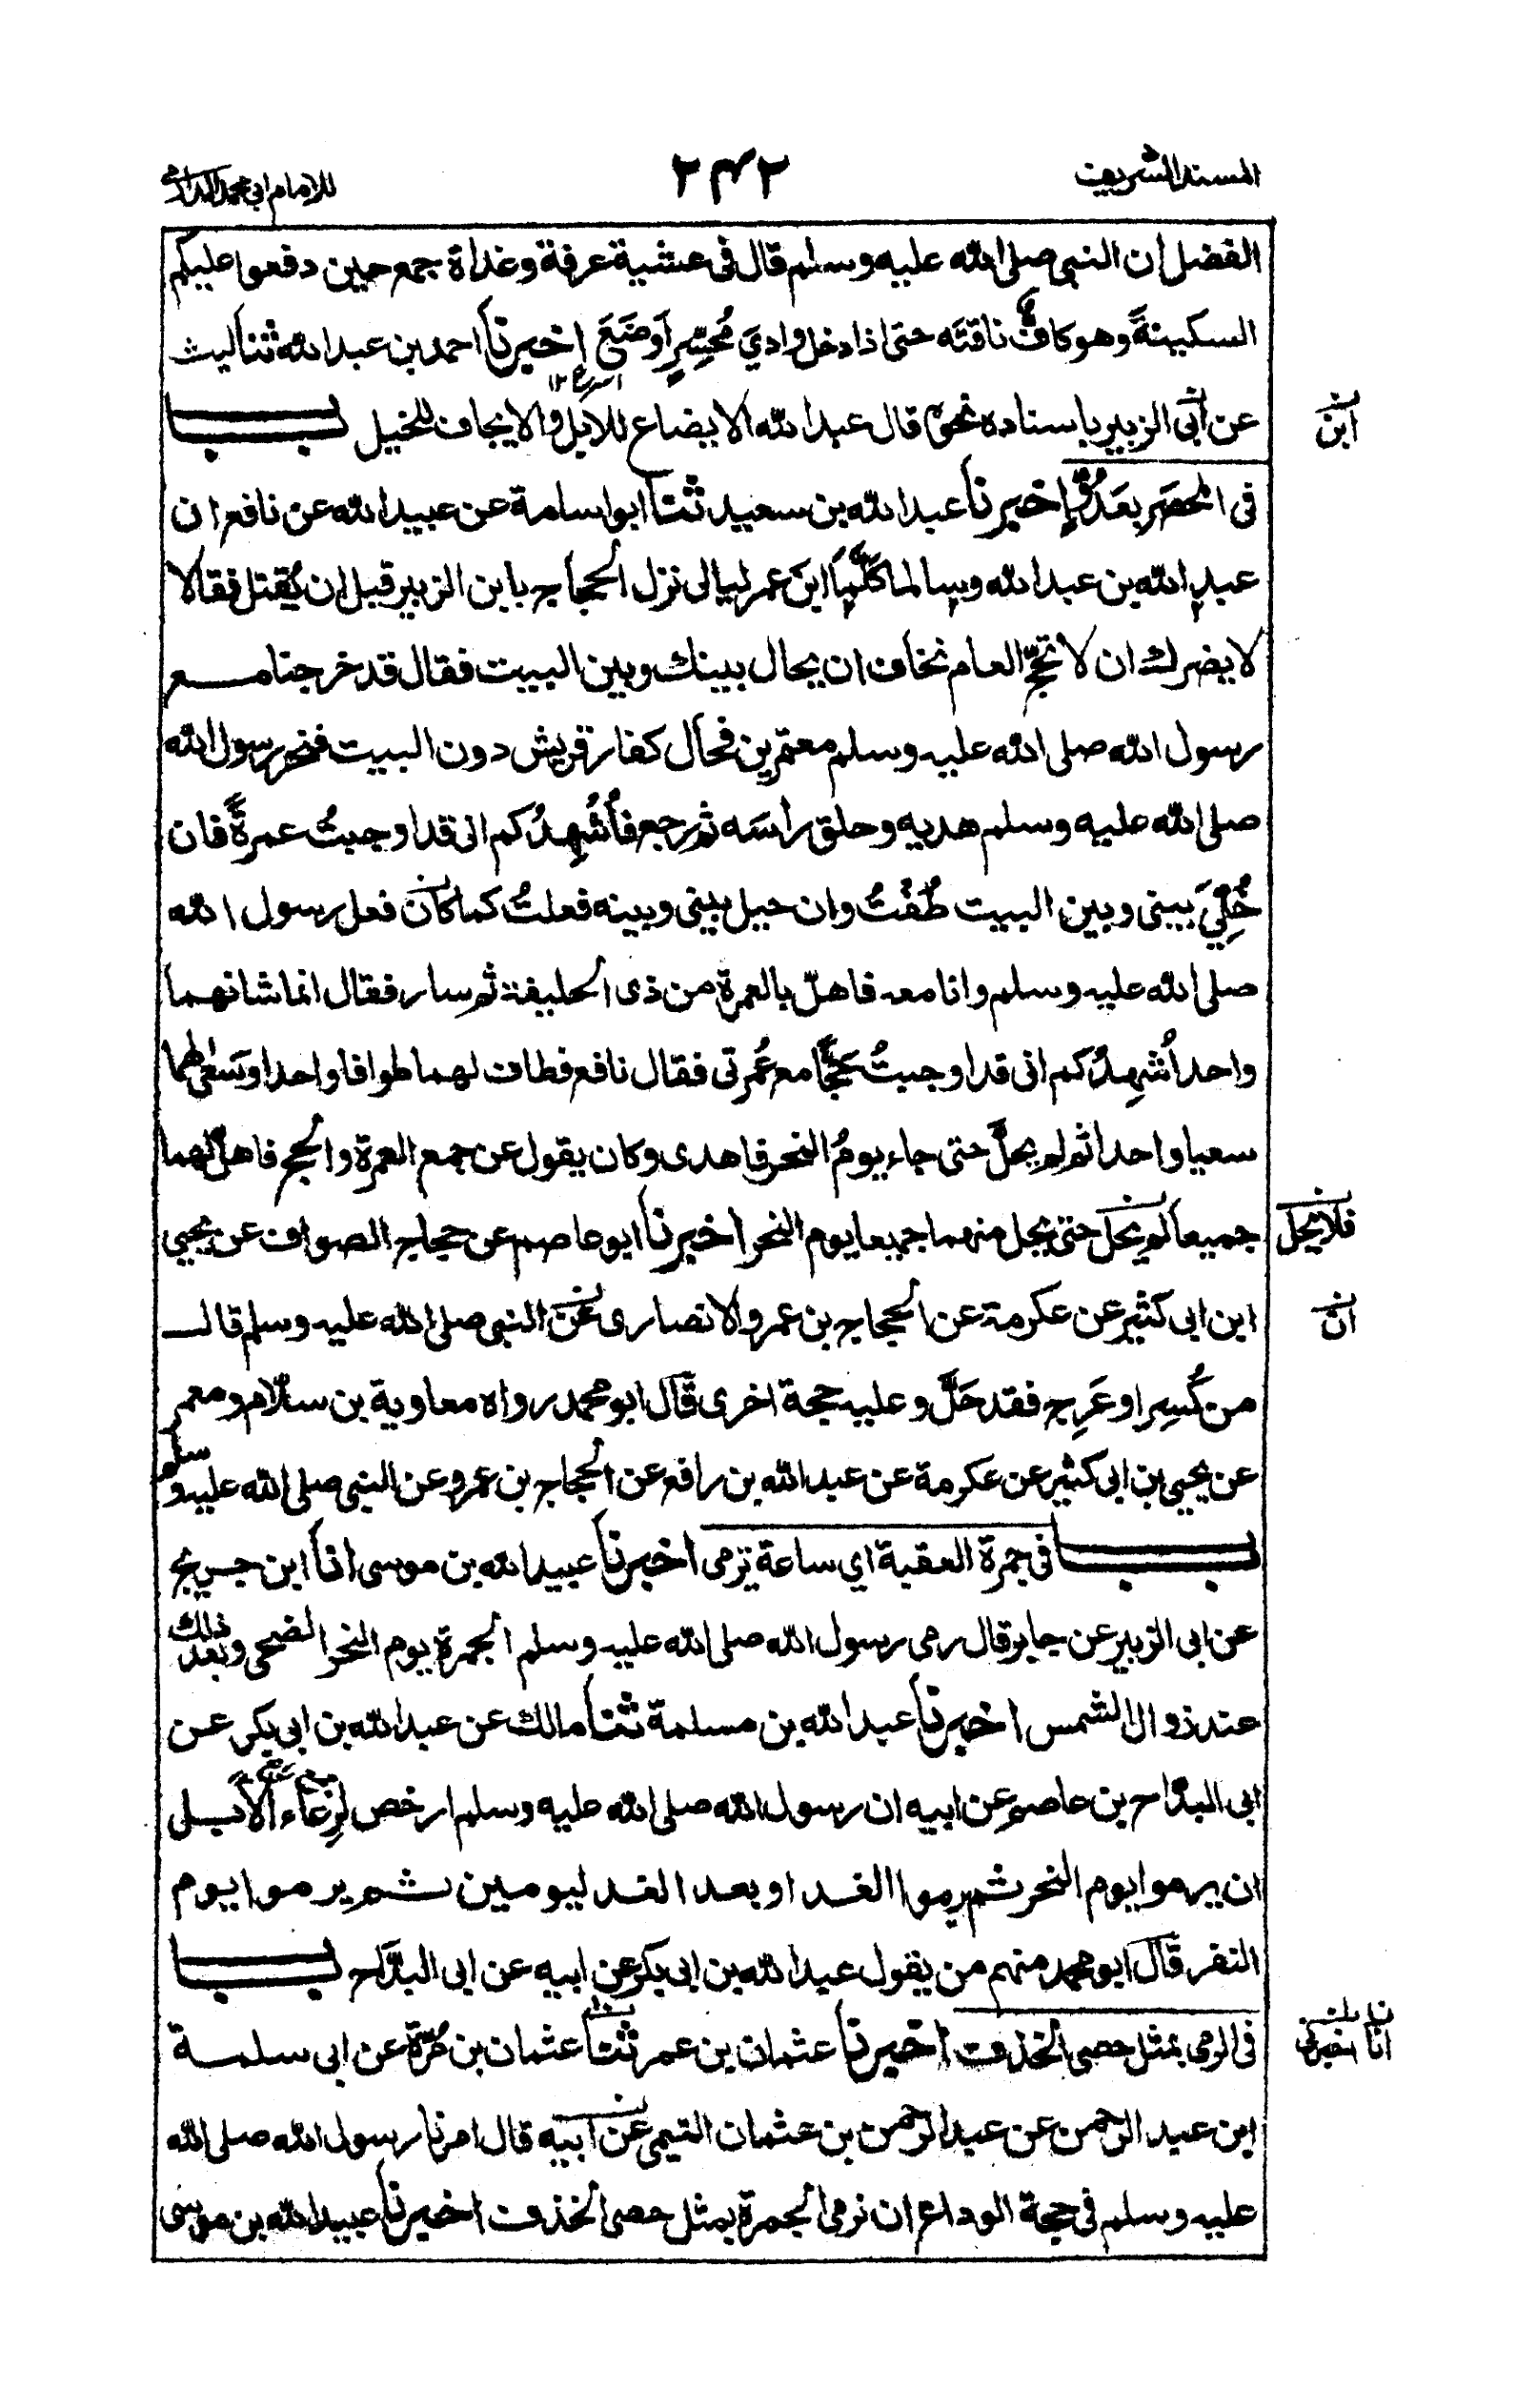 المسند الشريف ٢٤٢ للامام ابي محمد الدارمي
الفضل ان النبى صلى الله عليه وسلم قال فى عشية عرفة وغداة جمع حين دفعوا عليكم
السكينةَ وهو كافٌّ ناقتَه حتى اذا دخل وادىَ مُحَسِّرٍ اَوضَعَ اخبرنا احمد بن عبد الله ثنا ليث
اسرع ١٢
عن ابى الزبير باسناده نحوه قال عبد الله الايضاع للابل والايجاف للخيل بـــاب
ابن
فى المحصَر بعَدُوٍّ اخبرنا عبد الله بن سعيد ثنا ابو اسامة عن عبيد الله عن نافع ان
عبد الله بن عبد الله وسالما كلَّمَا ابنَ عمر ليالى نزل الحجاج بابن الزبير قبل ان يُقتل فقالا
لا يضرك ان لا تحجّ العام نخاف ان يحال بينك وبين البيت فقال قد خرجنا مـــع
رسول الله صلى الله عليه وسلم معتمرين فحال كفار قريش دون البيت فنحر رسول الله
صلى الله عليه وسلم هديه وحلق راسَه ثم رجع فاُشْهِدُكم انى قد اوجبتُ عمرةً فان
خُلِّيَ بينى وبين البيت طُفْتُ وان حيل بينى وبينه فعلتُ كما كان فعل رسول الله
صلى الله عليه وسلم وانا معه فاهلّ بالعمرة من ذى الحليفة ثم سار فقال انما شانهما
واحد اُشهِدُكم انى قد اوجبتُ حَجًّا مع عُمرتى فقال نافع فطاف لهما طوافا واحدا وسَعٰى لهما
سعيا واحدا ثم لم يحلَّ حتى جاء يومُ النحر فاهدى وكان يقول من جمع العمرة والحج فاهلّ لهما
جميعا لم يحل حتى يحل منهما جميعا يوم النحر اخبرنا ابو عاصم عن حجاج الصواف عن يحيى
فلا يحل
ابن ابى كثير عن عكرمة عن الحجاج بن عمرو الانصارى عن النبى صلى الله عليه وسلم قالــ
ان
من كُسِر او عَرِج فقد حَلَّ وعليه حجة اخرى قال ابو محمد رواه معاوية بن سلّام ومعمر
عن يحيى بن ابى كثير عن عكرمة عن عبد الله بن رافع عن الحجاج بن عمرو عن النبى صلى الله عليه وسلم
بـــاب فى جمرة العقبة اي ساعة ترمى اخبرنا عبيد الله بن موسى انا ابن جريج
عن ابى الزبير عن جابر قال رمى رسول الله صلى الله عليه وسلم الجمرة يوم النحر الضحى وبعد ذلك
عند زوال الشمس اخبرنا عبد الله بن مسلمة ثنا مالك عن عبد الله بن ابى بكر عن
ابى البدّاح بن عاصم عن ابيه ان رسول الله صلى الله عليه وسلم ارخص لرِعَاء الابــل
ان يرموا يوم النحر ثم يرموا الغد او بعد الغد ليومين ثم يرموا يوم
النفر قال ابو محمد منهم من يقول عبد الله بن ابى بكر عن ابيه عن ابى البدَّاح بـــاب
فى الرمى بمثل حصى الخذف اخبرنا عثمان بن عمر ثنا عثمان بن مُرَّة عن ابى سلمــة
انا اخبرنى
ابن عبد الرحمن عن عبد الرحمن بن عثمان التيمى عن ابيه قال امرنا رسول الله صلى الله
عليه وسلم فى حجة الوداع ان نرمى الجمرة بمثل حصى الخذف اخبرنا عبيد الله بن موسى